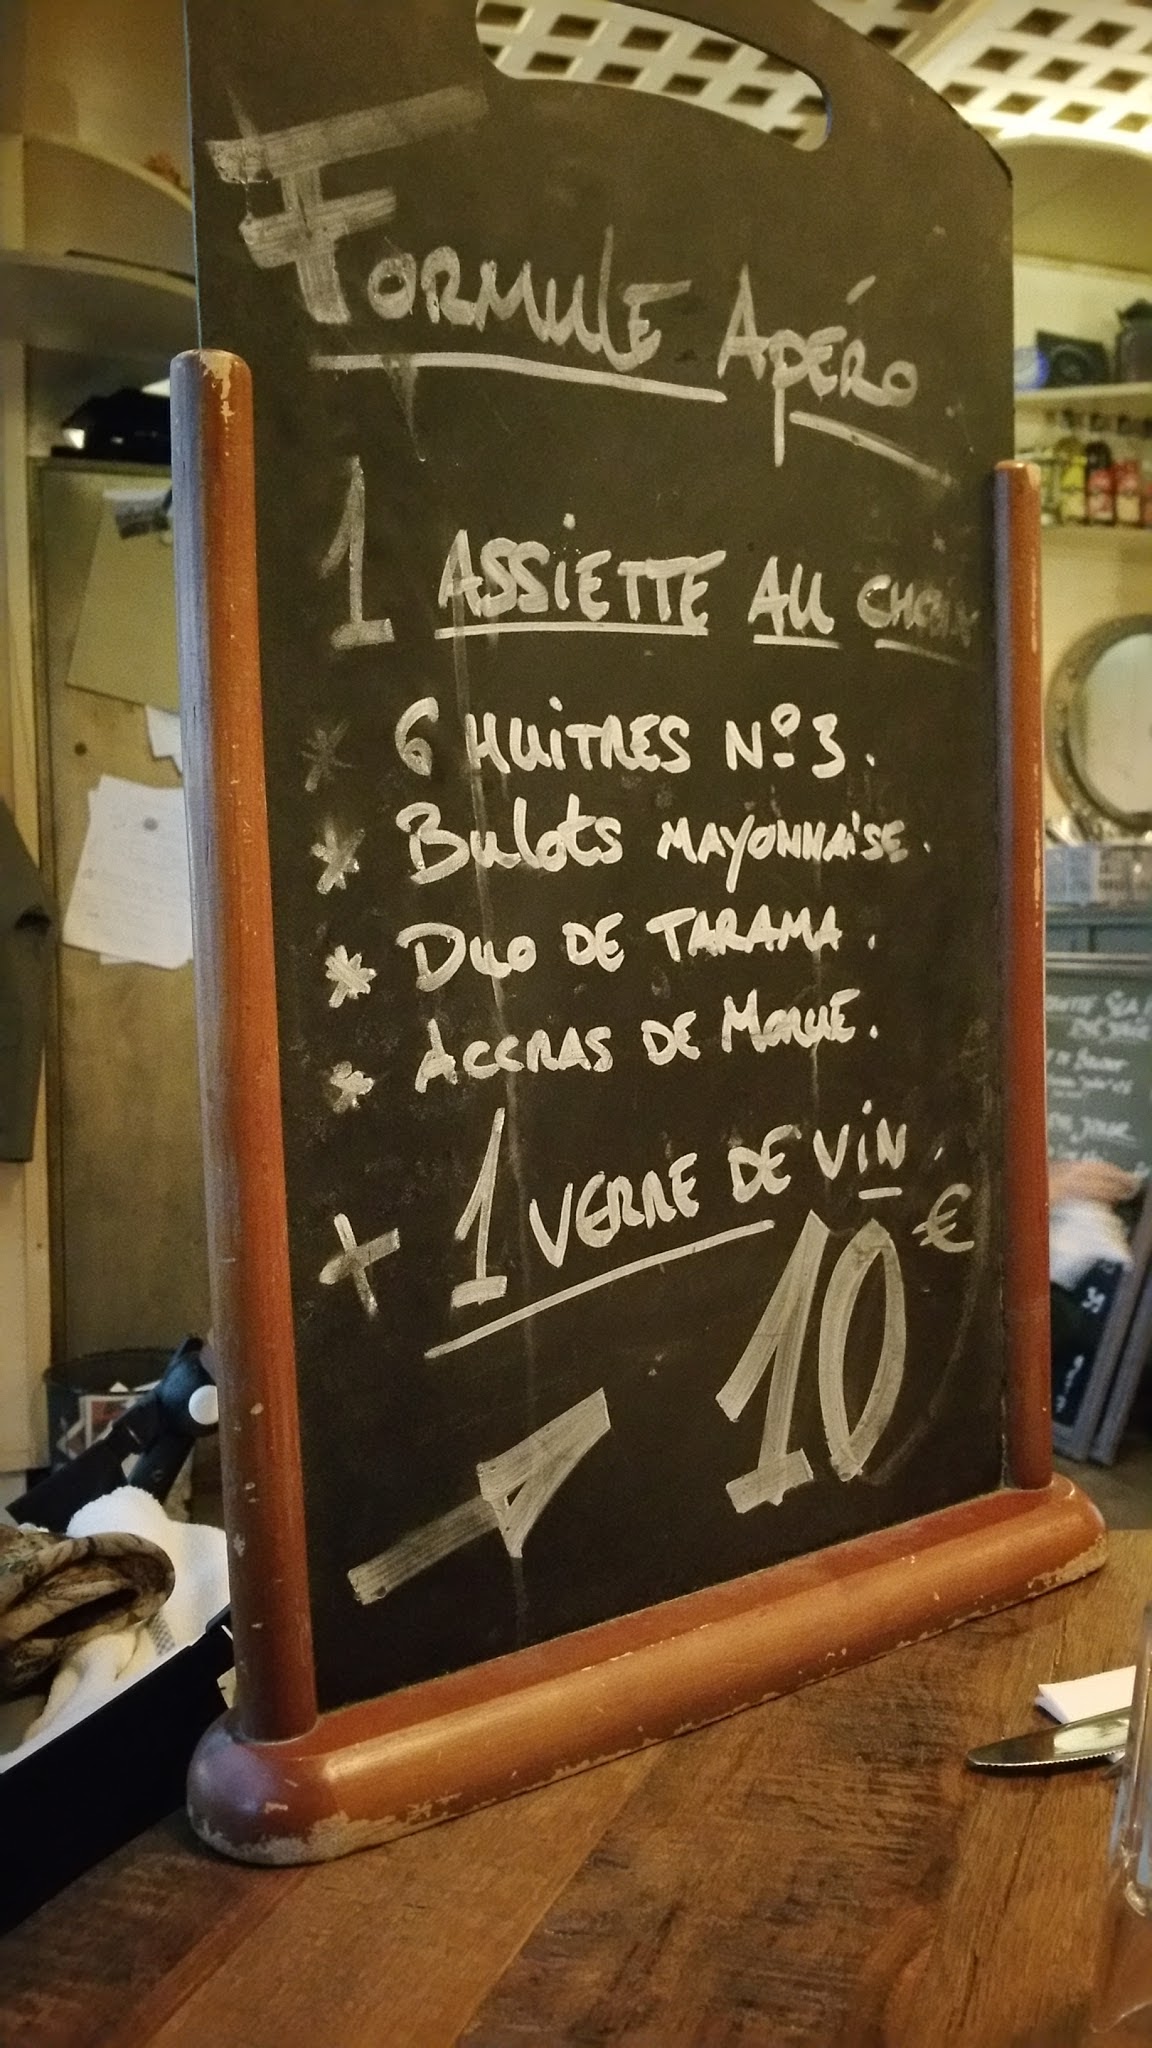 FORMULE APÉRO
1 ASSIETTE AU CHOIX
* 6 HUITRES N°3.
* Bulots MAYONNAISE.
* DUO DE TARAMA.
* ACCRAS DE MORUE.
+ 1 VERRE DE VIN.
10 €